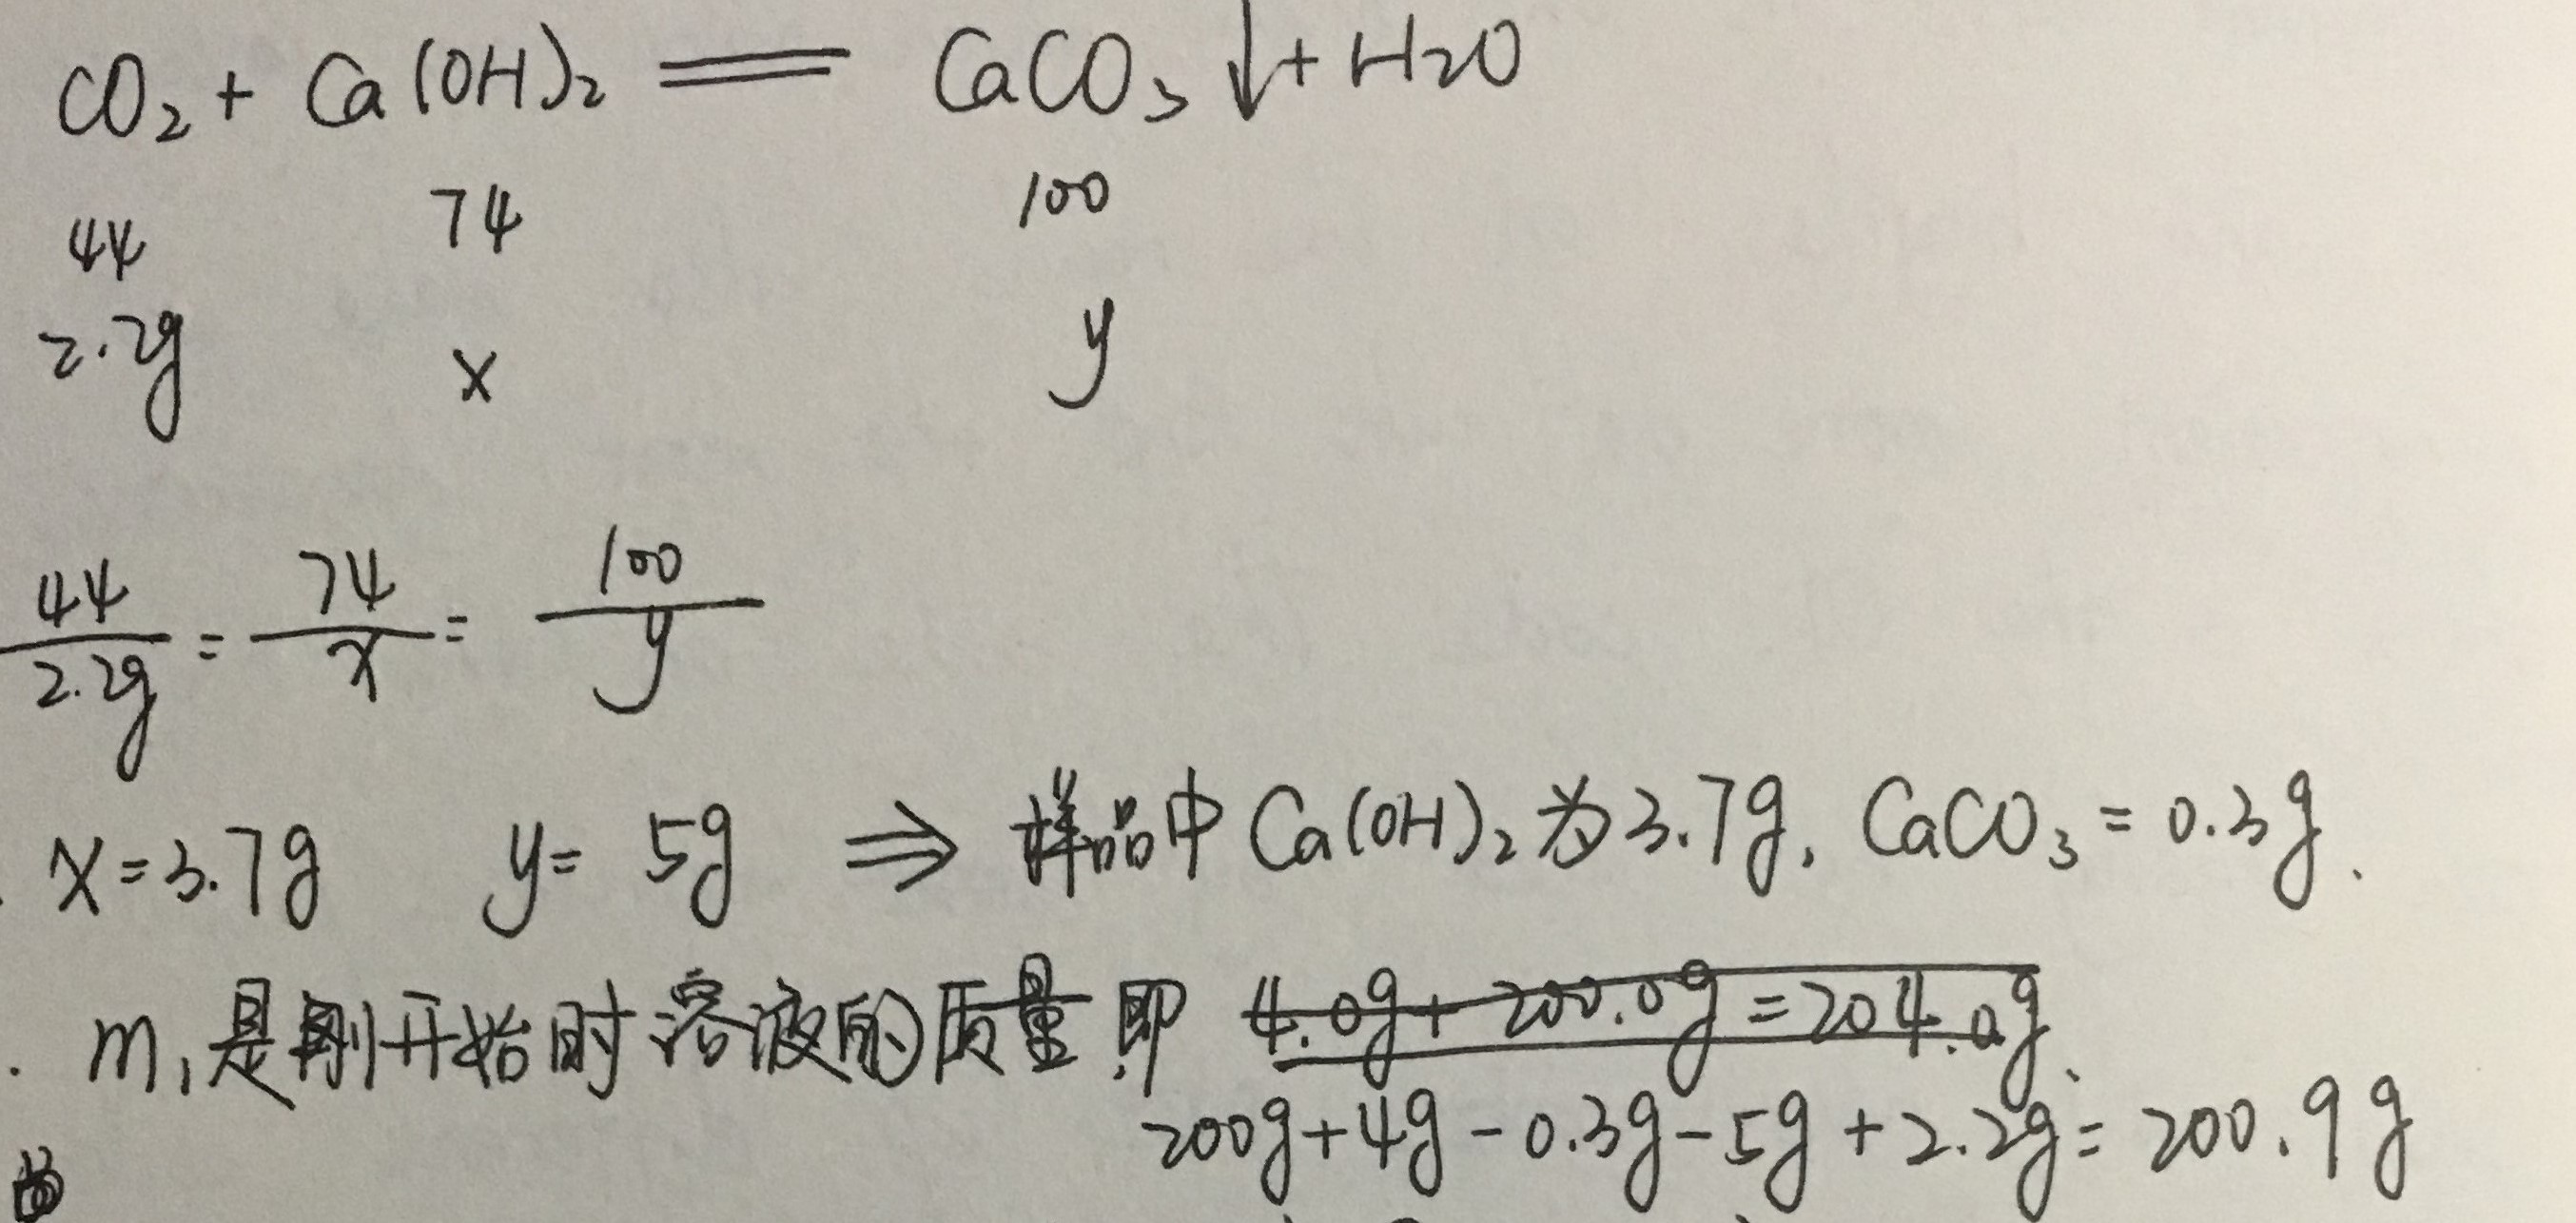 CO₂ + Ca(OH)₂ == CaCO₃↓ + H2O
44 74 100
2.2g x y
44/2.2g = 74/x = 100/y
x=3.7g y= 5g ⇒ 样品中Ca(OH)₂为3.7g, CaCO₃ = 0.3g.
m₁是刚开始时溶液的质量.即 4.0g+200.0g=204.0g、
200g+4g-0.3g-5g+2.2g= 200.9g